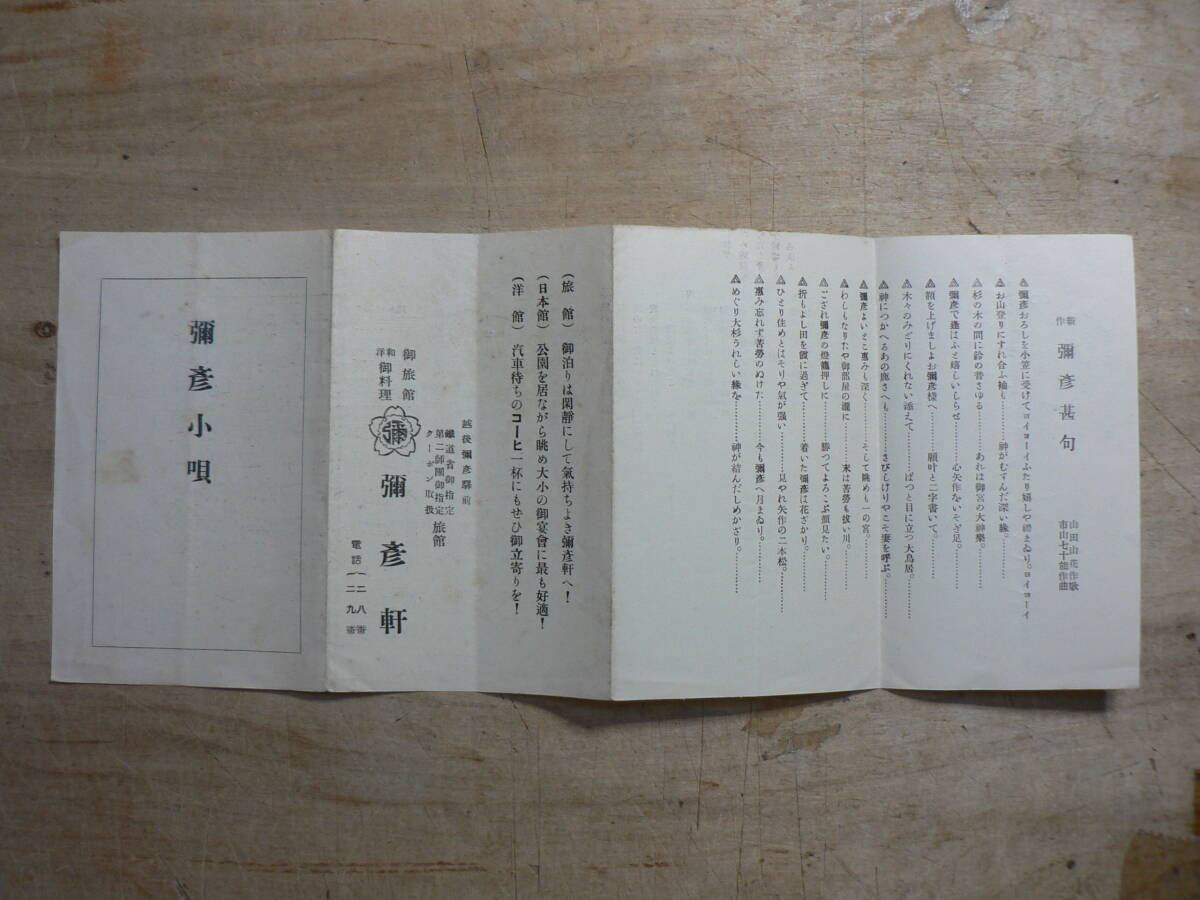 新作 彌彥甚句
山田山花作歌
市山七十能作曲
彌彥おろしを小笠に受けてヨイヨーイふたり嬉しや禮まゐり。ヨイヨーイ
お山登りにすれ合ふ袖も………神がむすんだ深い緣。
杉の木の間に鈴の音さゆる………あれは御宮の大神樂。
彌彥で逢はふと嬉しいしらせ………心矢作ないそぎ足。
額を上げましよお彌彥樣へ………願叶と二字書いて。
木々のみどりにくれない添えて………ぱつと目に立つ大鳥居。
神につかへるあの鹿さへも………さびしけりやこそ妻を呼ぶ。
彌彥よいとこ惠みも深く………そして眺めも一の宮。
わしもなりたや御部屋の瀧に………末は苦勞も祓い川。
ござれ彌彥の燈籠押しに………勝つてよろこぶ顏見たい。
折もよし田を霞に過ぎて………着いた彌彥は花ざかり。
ひとり住めとはそりや氣が强い………見やれ矢作の二本松。
惠み忘れず苦勞のぬけた………今も彌彥へ月まゐり。
めぐり大杉うれしい緣を………神が結んだしめかざり。
(旅館) 御泊りは閑靜にして氣持ちよき彌彥軒へ!
(日本館) 公園を居ながら眺め大小の御宴會に最も好適!
(洋館) 汽車待ちのコーヒ一杯にもぜひ御立寄りを!
越後彌彥驛前
鐵道省御指定
第二師團御指定
クーポン取扱
旅館
御旅館
和洋御料理
彌
彌彥軒
電話(二八番 二九番)
彌彥小唄